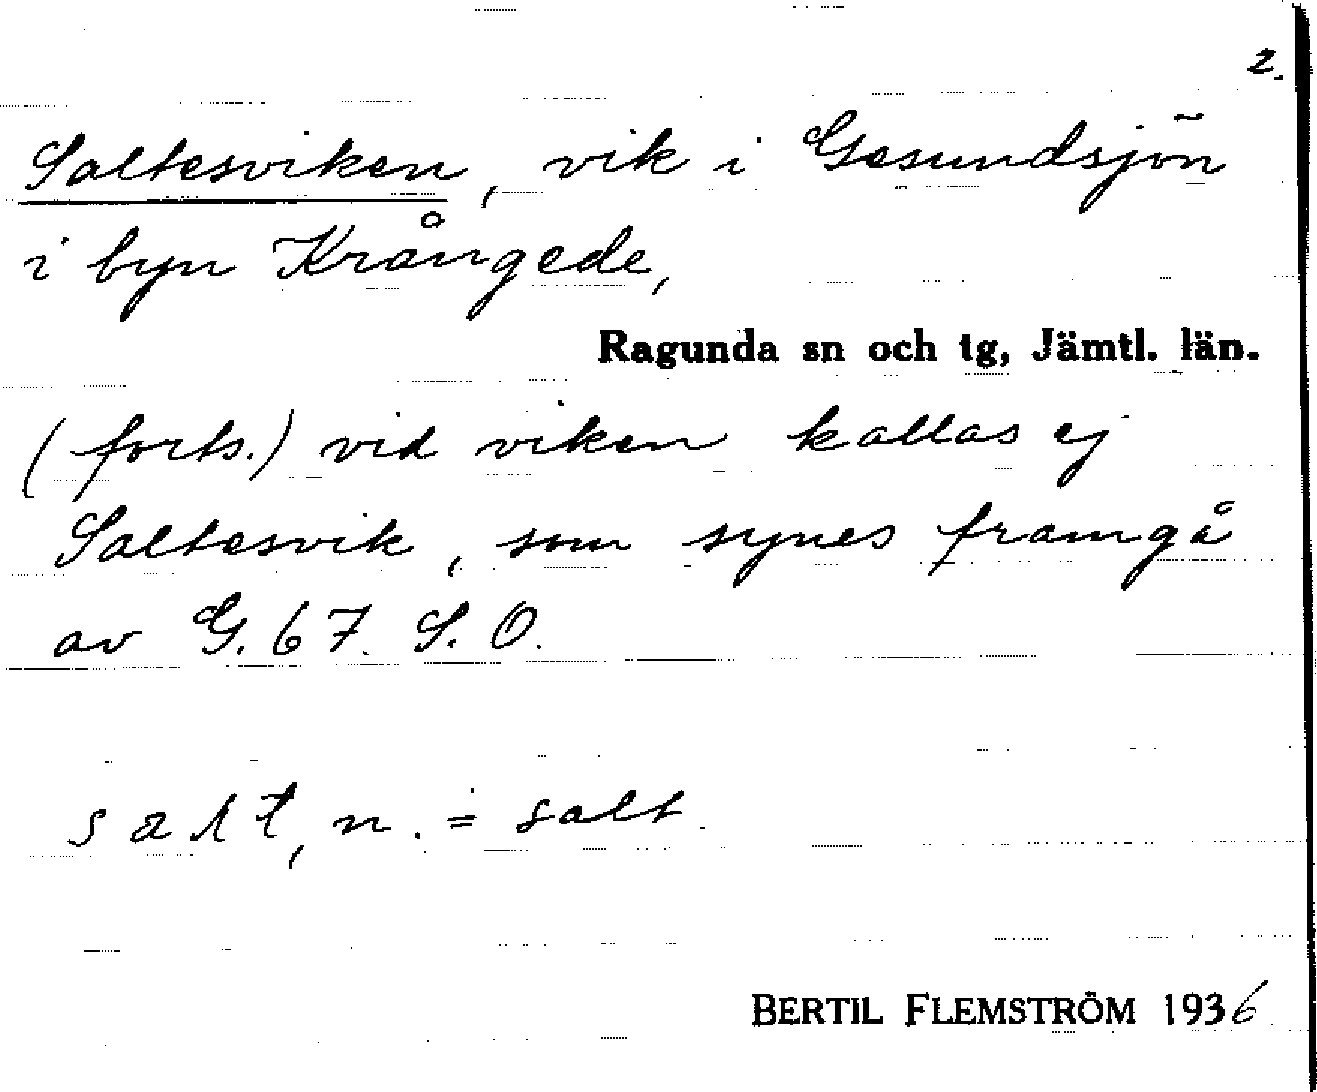 2.
Saltesviken, vik i Gesundsjön
i byn Krångede,
Ragunda sn och tg, Jämtl. län.
(forts.) vid viken kallas ej
Saltesvik, som synes framgå
av G. 67 S. O.
salt, n. = salt
BERTIL FLEMSTRÖM 1936